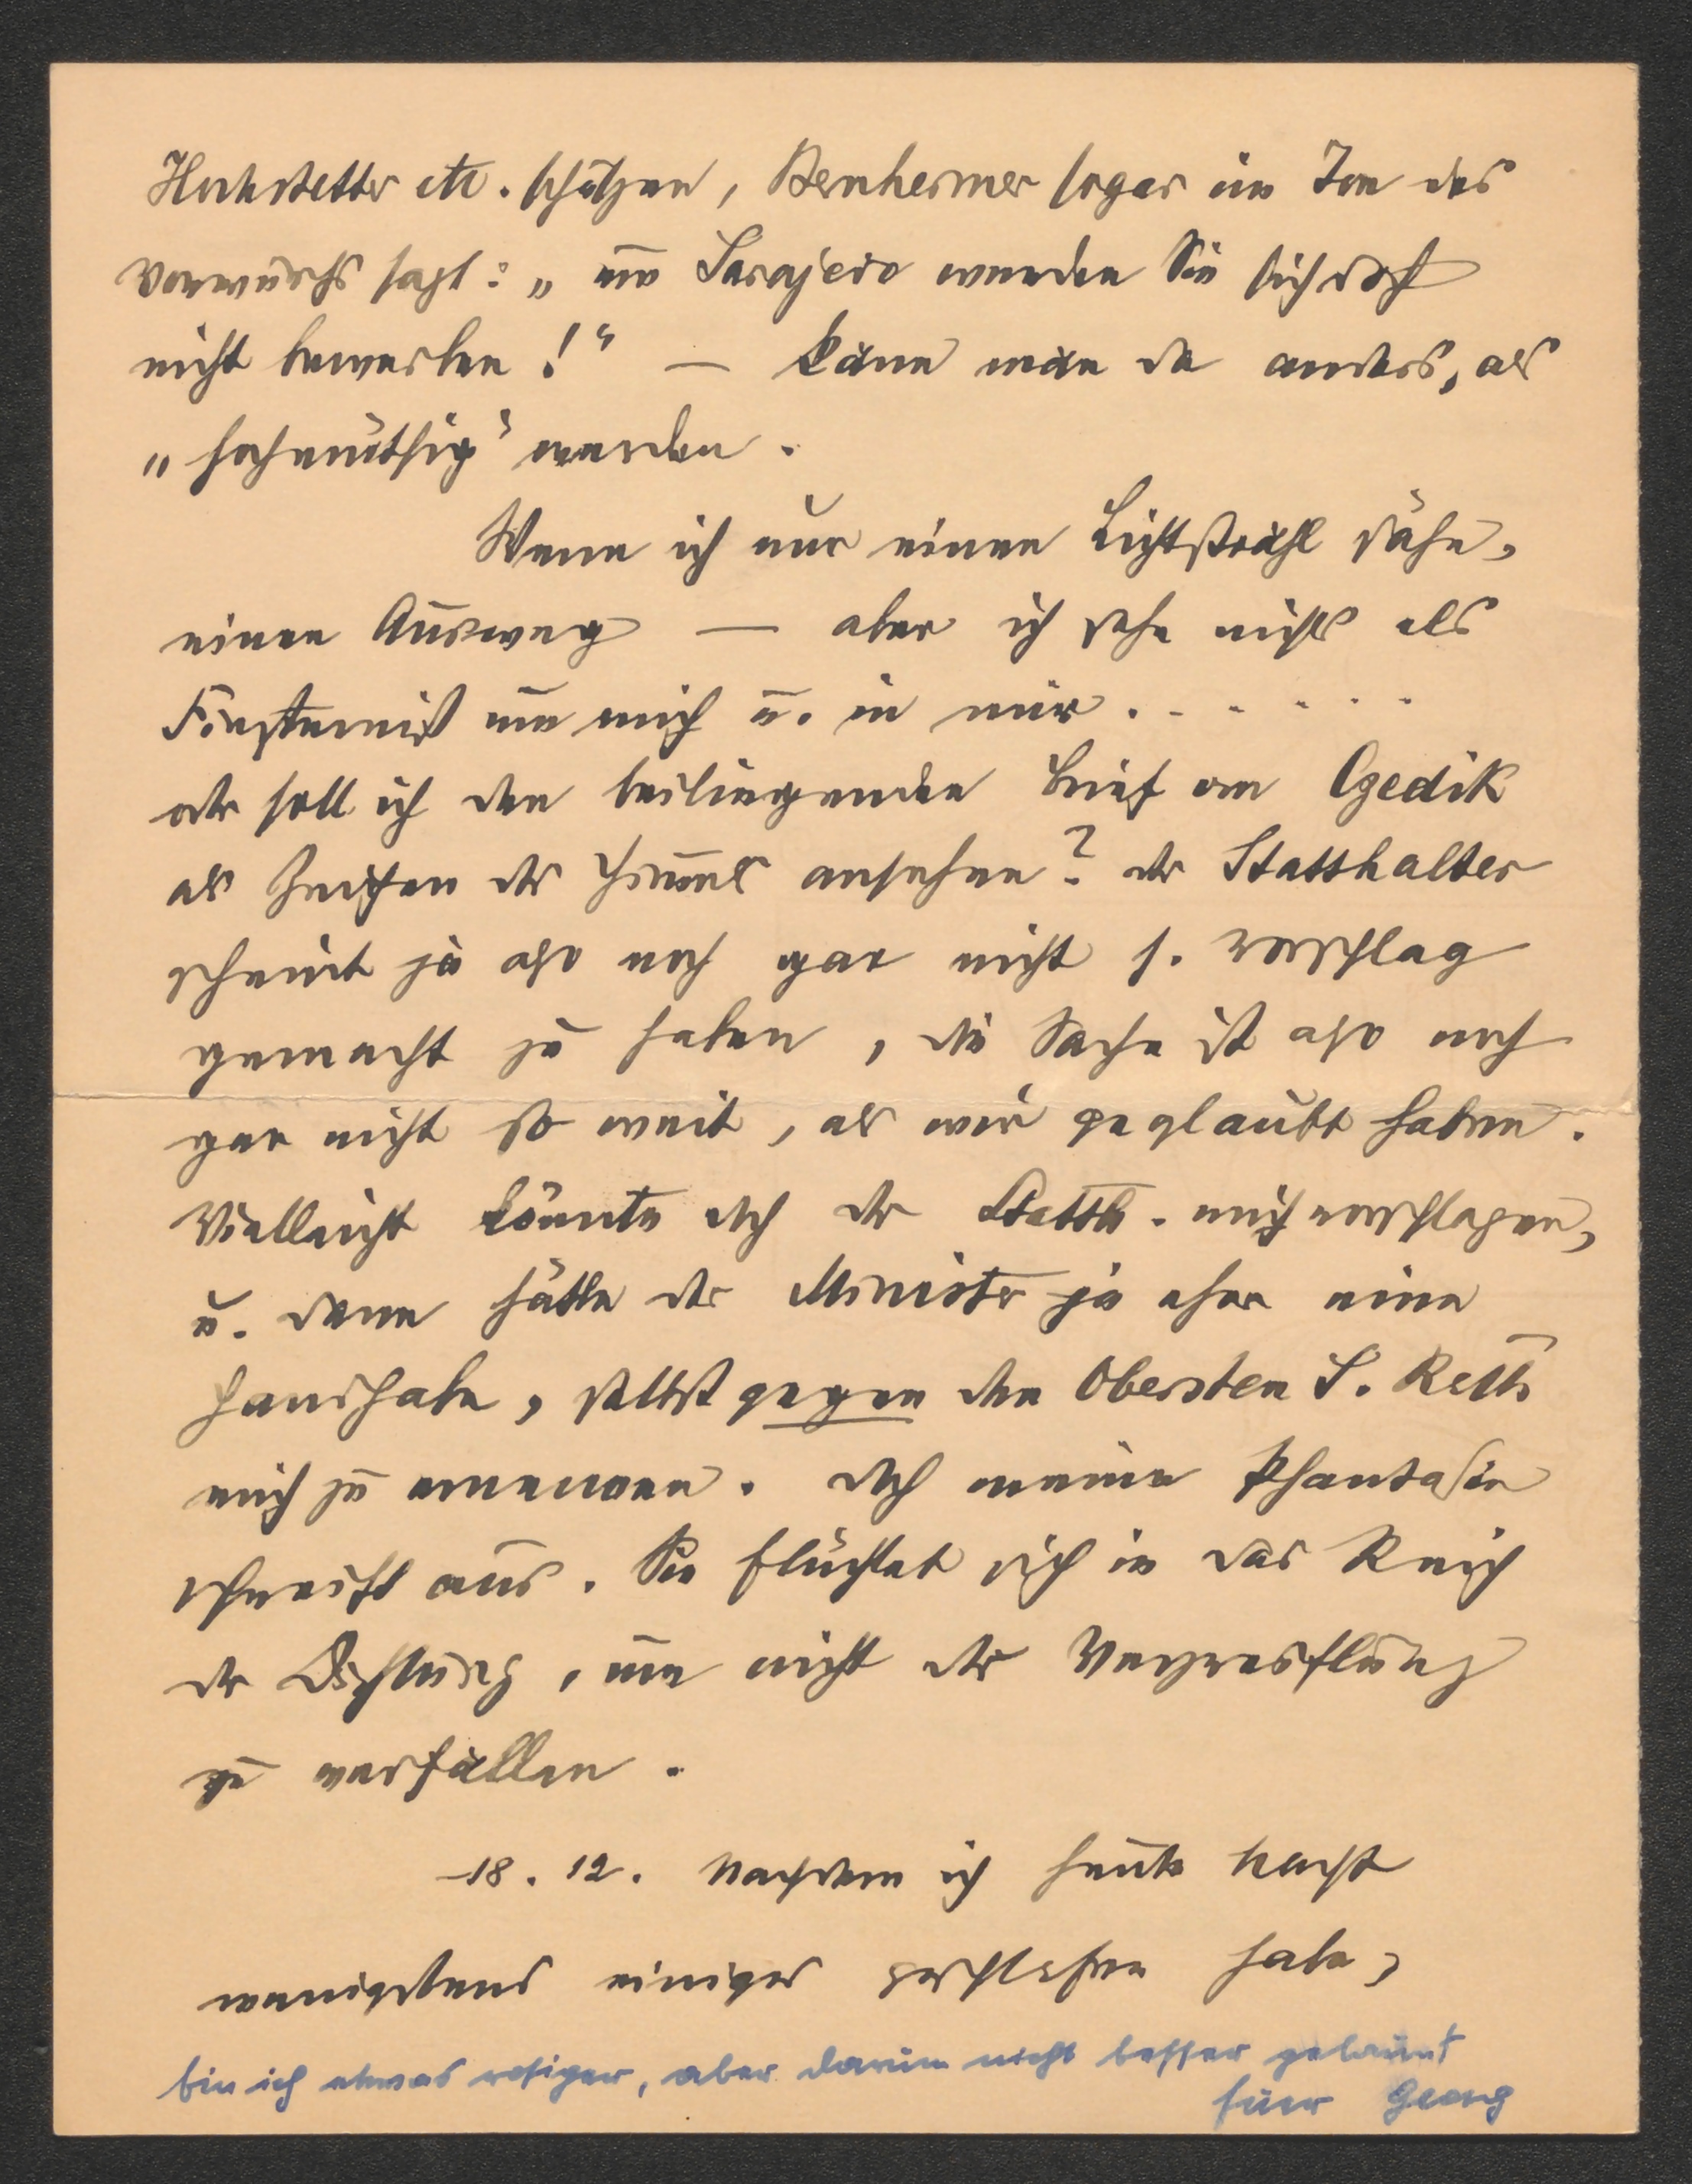 Hochstetter etc. schätzen, Bernheimer sogar im Ton des
Vorwurfs sagt: „um Sarajevo werden Sie sich doch
nicht bewerben!“ — Kann man da anders, als
„hochmüthig“ werden.
Wenn ich nur einen Lichtstrahl sähe,
einen Ausweg — aber ich sehe nichts als
Finsterniß um mich u. in mir . . . . . .
oder soll ich den beiliegenden Brief von Czedik
als Zeichen des Himmels ansehen? der Statthalter
scheint ja also noch gar nicht s. Vorschlag
gemacht zu haben, die Sache ist also noch
gar nicht so weit, als wir geglaubt haben.
Vielleicht könnte doch der Statth. mich vorschlagen,
u. dann hätte der Minister ja eher eine
Handhabe, selbst gegen den Obersten S. Rath
mich zu ernennen. Doch meine Phantasie
schweift aus. Sie flüchtet sich in das Reich
der Dichtung, um nicht der Verzweiflung
zu verfallen.
18. 12. Nachdem ich heute Nacht
wenigstens einiges geschlafen habe,
bin ich etwas ruhiger, aber darum nicht besser gelaunt
Euer Georg